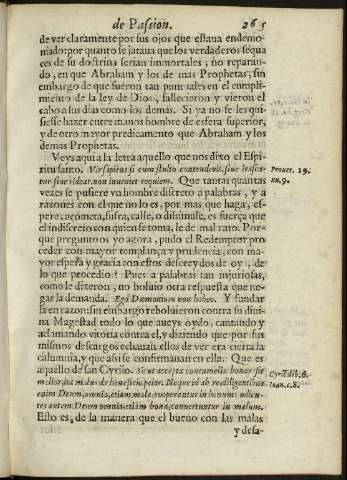 de Passion. 265
de ver claramente por sus ojos que estaua endemo-
niado: por quanto se jataua que los verdaderos sequa
ces de su doctrina serian immortales; no reparan-
do, en que Abraham y los de mas Prophetas, sin
embargo de que fueron tan puntuales en el cumpli-
miento de la ley de Dios, fallecieron y vieron el
cabo a sus dias como los demas. Si ya no se les qui-
siesse hazer entre manos hombre de esfera superior,
y de otro mayor predicamento que Abraham y los
demas Prophetas.
Veys aqui a la letra aquello que nos dixo el Espi-
ritu santo. Vir sapiens si cum stulto contenderit, siue irasca-
tur siue rideat, non inueniet requiem. Que tantas quantas
vezes se pusiere vn hombre discreto a palabras, y a
razones con el que no lo es, por mas que haga, es-
pere, aconseja, sufra, calle, o disimule, es fuerça que
el indiscreto con quien se toma, le de mal rato. Por-
que pregunto os yo agora, pudo el Redemptor pro
ceder con mayor templança y prudencia, con ma-
yor espera y gracia con estos descreydos de oy, de
lo que procedio? Pues a palabras tan injuriosas,
como le dixeron, no huuo otra respuesta que ne-
gar la demanda. Ego Dæmonium non habeo. Y fundar
la en razon: sin embargo reboluieron contra su diui-
na Magestad todo lo que aueys oydo, cantando y
aclamando vitoria contra el, y diziendo que por sus
mismos descargos echauan ellos de ver era cierta la
calumnia, y que assi se confirmauan en ella. Que es
aquello de san Cyrilo. Sicut accepta contumelia bonus fit
melior, ita malus de beneficio, peior. Neque id ab re diligentibus
enim Deum, omnia, etiam mala cooperantur in bonum: odien-
tes autem Deum omnia, etiam bona, conuertuntur in malum.
Esto es, de la manera que el bueno con las malas
y desa-
Prouer. 29.
nu. 9.
Cyril. lib. 6.
in Ioan. c. 8.